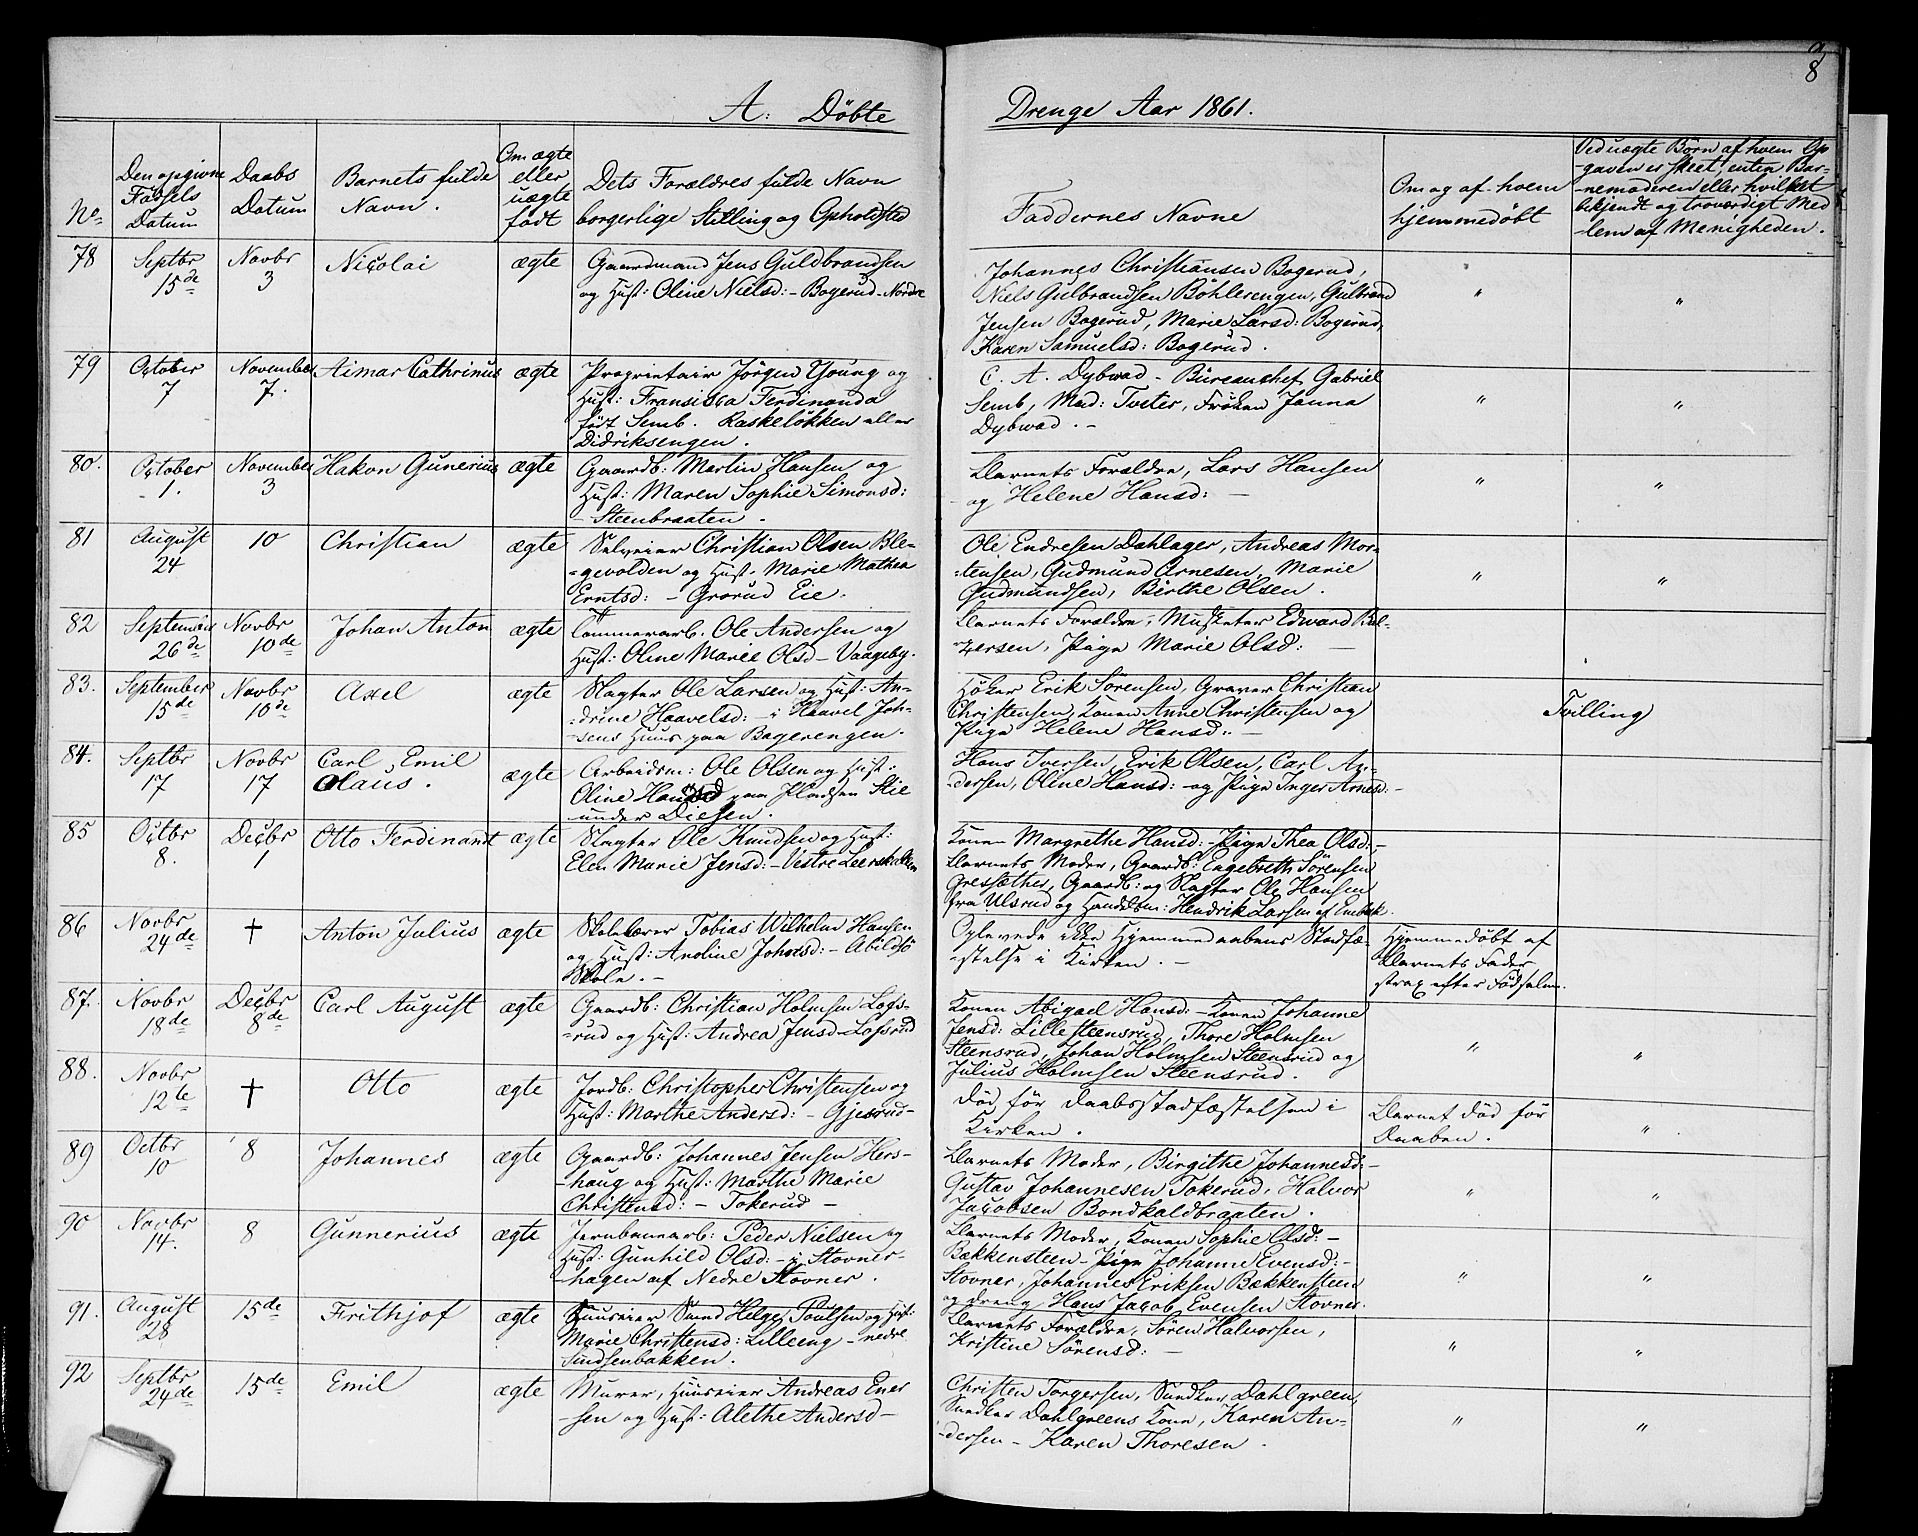 8
A. Döbte Drenge Aar 1861.
No.
Den opgivne Fødsels Datum
Daabs Datum
Barnets fulde Navn.
Om ægte eller uægte født
Dets Forældres fulde Navn borgerlige Stilling og Opholdsted
Faddernes Navne
Om og af hvem hjemmedöbt
Ved uægte Børn af hvem Opgaven er skeet, enten Barnemoderen eller hvilket bekjendt og troværdigt Medlem af Menigheden.
78
Septbr 15de
Novbr 3
Nicolai
ægte
Gaardmand Jens Guldbrandsen
og Hust: Oline Nielsd: - Bogerud - Nordre
Johannes Christiansen Bogerud,
Niels Gulbrandsen Böhlerengen, Gulbrand
Jensen Bogerud, Marie Larsd: Bogerud,
Karen Samuelsd: Bogerud.
" "
79
October 7
November 7.
Aimar Cathrinus
ægte
Proprietair Jörgen Young og
Hust: Fransisca Ferdinanda
født Semb. Raskelökken eller
Didriksengen.
C. A. Dybwad - Bureauchef Gabriel
Semb, Mad: Tveter, Fröken Janna
Dybwad. -
" "
80.
October 1.
November 3
Hakon Gunerius
ægte
Gaardb: Martin Hansen og
Hust: Maren Sophie Simonsd:
- Steenbraaten.
Barnets Forældre, Lars Hansen
og Helene Hansd: -
" "
81
August 24
10
Christian
ægte
Selveier Christian Olsen Ble-
-gevolden og Hust. Marie Mathea
Erntsd: - Grorud Eie.
Ole Endresen Dahlager, Andreas Mor-
-tensen, Gudmund Arnesen, Marie
Gudmundsen, Birthe Olsen.
" "
82
September 26de
Novbr 10de
Johan Anton
ægte
Tömmerarb. Ole Andersen og
Hust: Oline Marie Olsd - Vaageby.
Barnets Forældre, Musketer Edward Bal-
-zersen, Pige Marie Olsd: -
83.
September 15de
Novbr 10de
Axel
ægte
Slagter Ole Larsen og Hust: An-
-drine Haavelsd: - i Haavel Joh-
-sens Huus paa Bagerengen.
Höker Erik Sörensen, Graver Christian
Christensen, Konen Anne Christensen og
Pige Helene Hansd: -
Tvilling
84.
Septbr 17
Novbr 17
Carl Emil
Olaus.
ægte
Arbeidsm: Ole Olsen og Hust:
Oline Hansd paa Pladsen Stie
under Diesen.
Hans Iversen, Erik Olsen, Carl An-
-dersen, Oline Hansd: - og Pige Inger Arnesd: -
85
Octbr 8.
Decbr 1
Otto Ferdinandt
ægte
Slagter Ole Knudsen og Hust:
Elen Marie Jensd: - Vestre
Konen Margrethe Hansd: - Pige Thea Olsd: -
Barnets Moder, Gaardb: Engebreth Sörensen
Gressæther, Gaardb: og Slagter Ole Hansen
fra Ulsrud og Handelsm: Hendrik Larsen af
86
Novbr 24de
†
Anton Julius
ægte
Skolelærer Tobias Wilhelm Hansen
og Hust: Anoline Johnsd: - Abildsö
Skole. -
Oplevede ikke Hjemmedaabens Stadfæ-
-stelse i Kirken. -
Hjemmedöbt af
Barnets Fader
strax efter Födselen.
87.
Novbr 18de
Decbr 8de
Carl August
ægte
Gaardb: Christian Holmsen Lofs-
-rud og Hust: Andrea Jensd - Lofsrud
Konen Abigael Hansd: - Konen Johanne
Jensd: Lille steensrud, Thore Holmsen
Steensrud, Johan Holmsen Steensrud og
Julius Holmsen Steensrud.
" "
88.
Novbr 12te
†
Otto
ægte
Jordb: Christopher Christensen og
Hust: Marthe Andersd: - Gjesrud -
Död för Daabsstadfæstelsen i
Kirken.
Barnet död för
Daaben.
"
89
Octbr 10
8
Johannes
ægte
Gaardb: Johannes Jensen Hers-
-haug og Hust: Marthe Marie
Christensd: - Tokerud -
Barnets Moder, Birgithe Johannesd: -
Gustav Johannesen Tokerud, Halvor
Jacobsen Bondkaldbraaten.
" "
90
Novbr 14.
8
Gunnerius
ægte
Jernbanearb: Peder Nielsen og
Hust: Gunhild Olsd: - i Stovner-
-hagen af Nedre Stovner.
Barnets Moder, Konen Sophie Olsd: -
Bækkensteen - Pige Johanne Evensd: -
Stovner, Johannes Eriksen Bækkensteen
og dreng Hans Jacob Evensen Stovner.
" "
91.
August 28
15de
Frithjof
ægte
Huuseier Svend Helge Poulsen og Hust:
Marie Christensd: Lilleeng - nedre
Sindsenbakken.
Barnets Forældre, Sören Halvorsen,
Kristine Sörensd: -
" "
92
Septbr 24de
15de
Emil
ægte
Murer, Huuseier Andreas Ener
-sen og Hust: Alethe Andersd -
Christen Torgersen, Snedker Dahlgreen,
Snedker Dahlgreens Kone, Karen An-
-dersen - Karen Thoresen.
" "